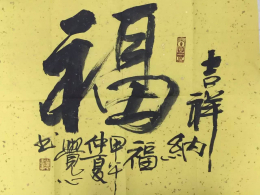 福
吉祥納
福甲午
仲夏
覺心
书